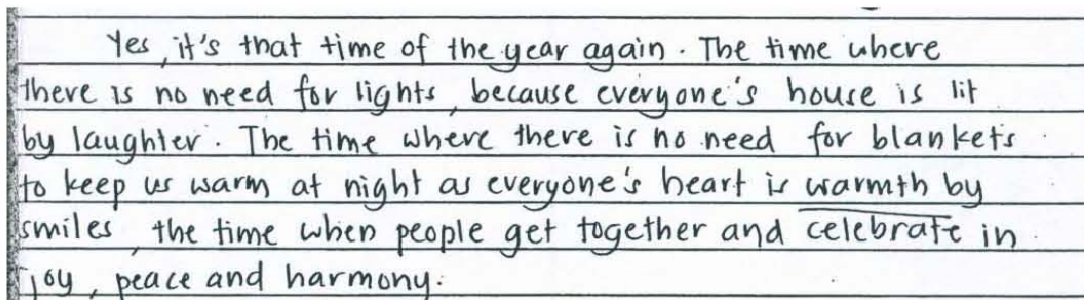 Yes, it's that time of the year again. The time where
there is no need for lights, because everyone's house is lit
by laughter. The time where there is no need for blankets
to keep us warm at night as everyone's heart is warmth by
smiles, the time when people get together and celebrate in
joy, peace and harmony.